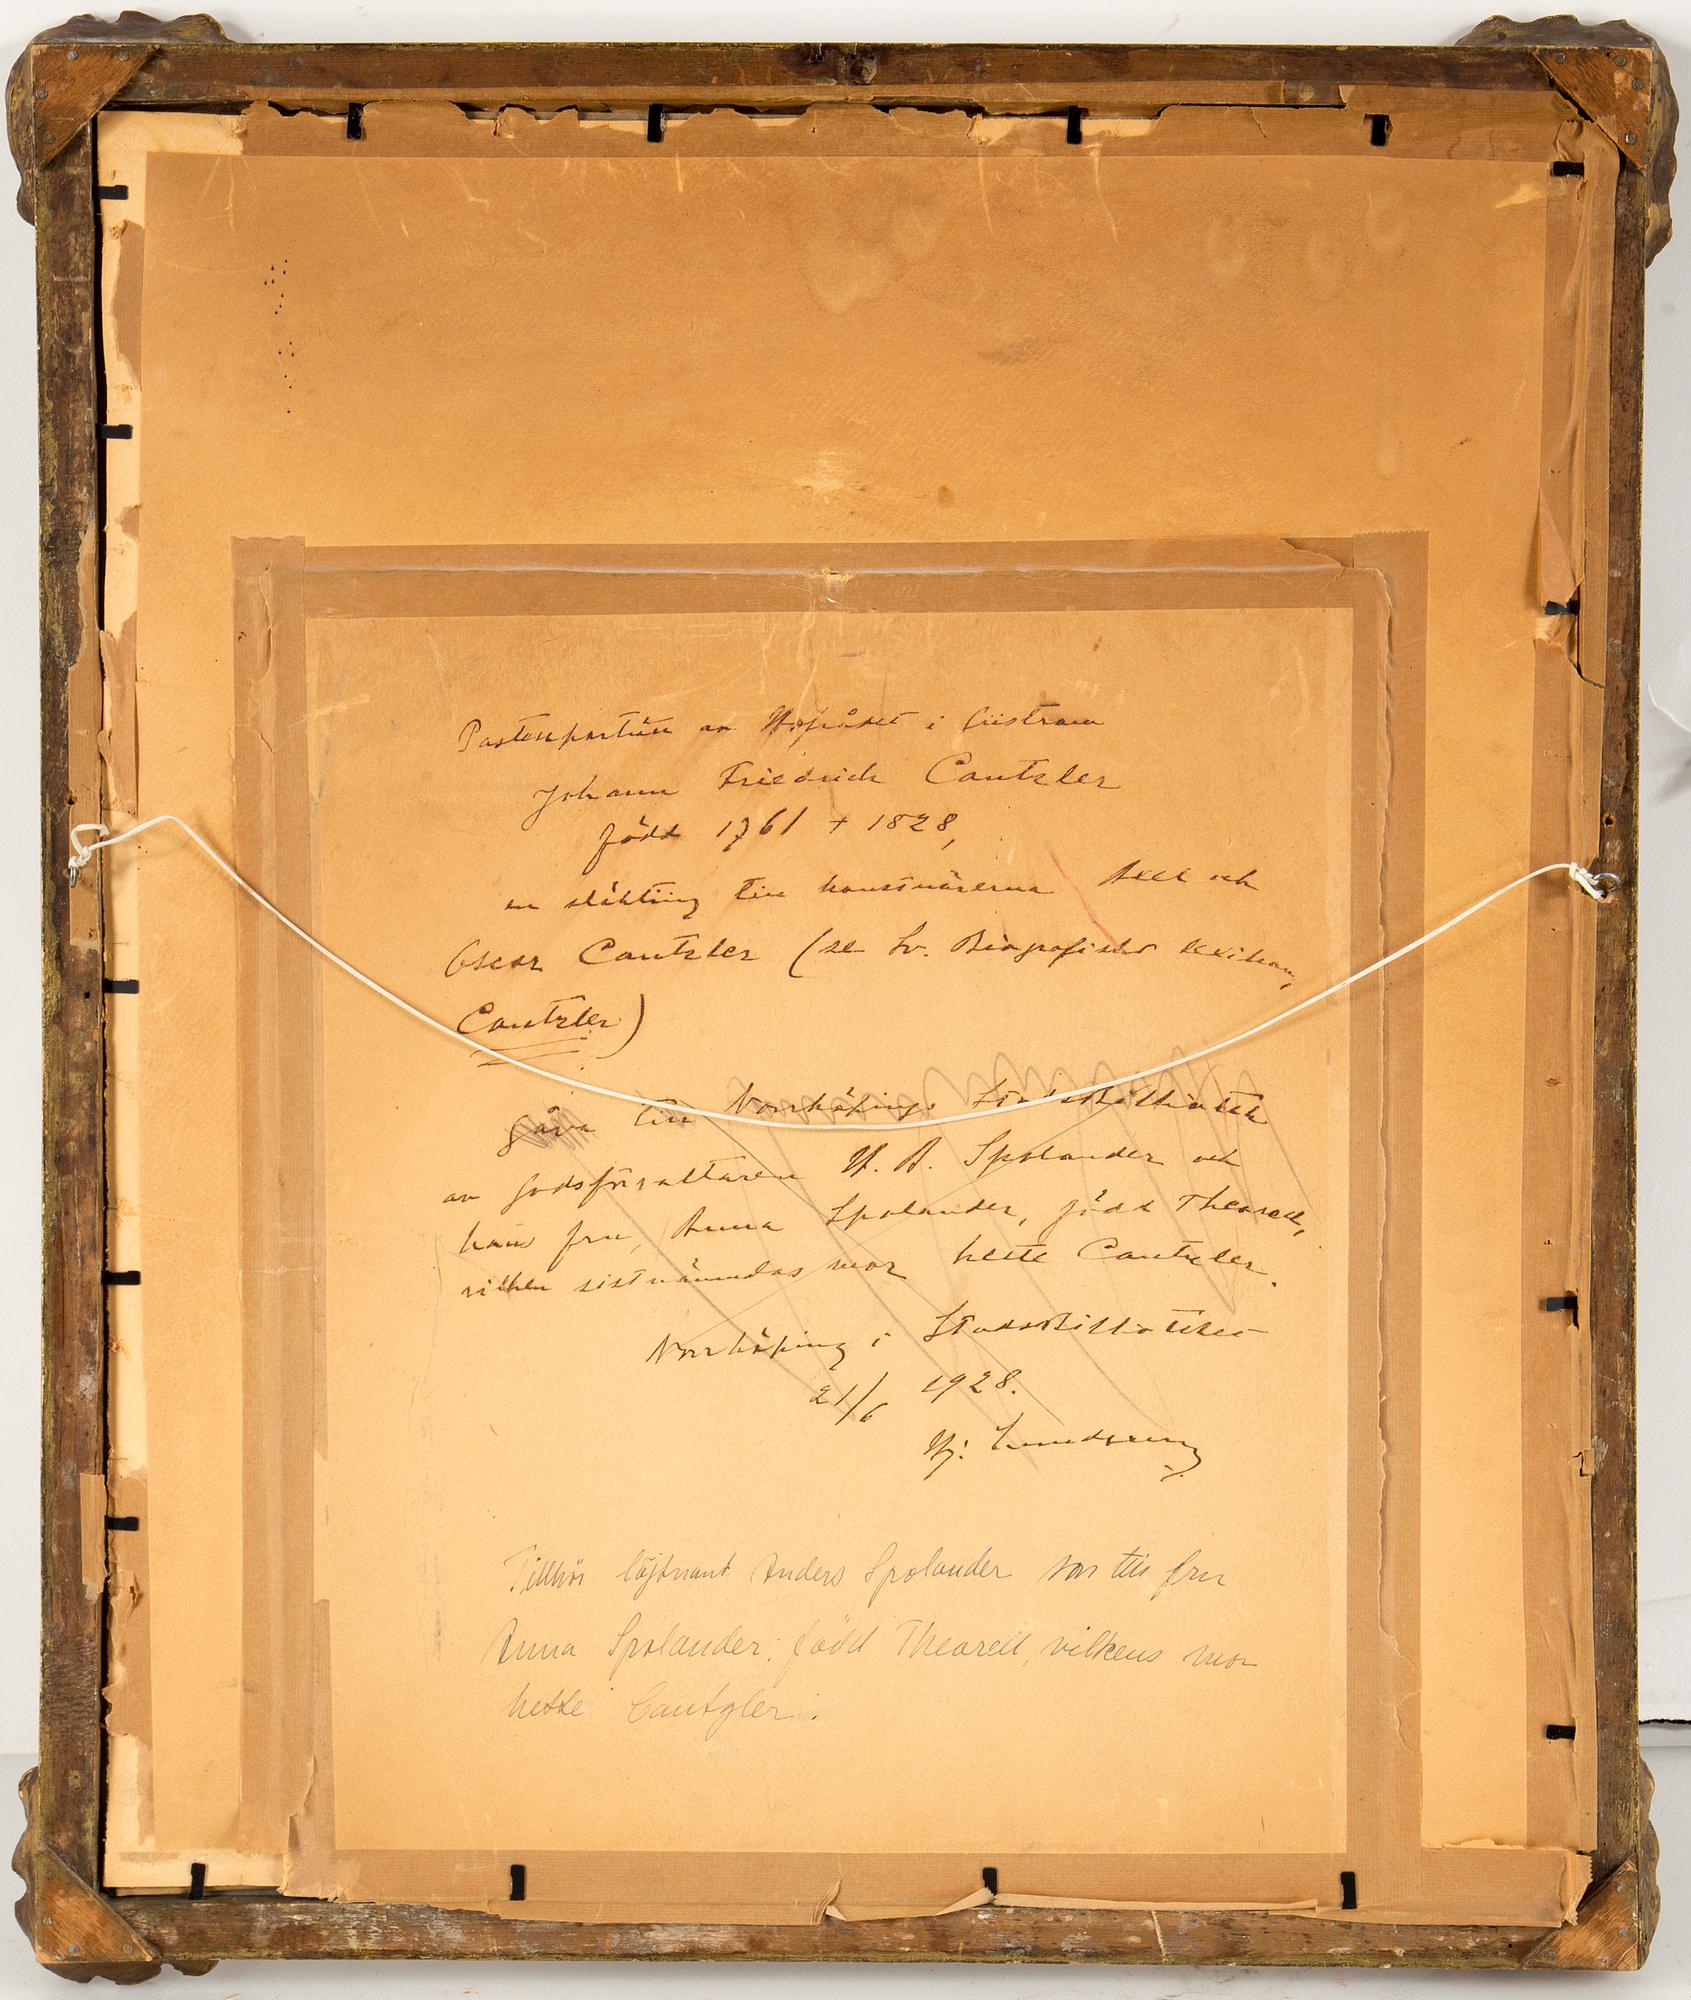 Pastellporträtt av Hofrådet i Güstrow
Johann Friedrich Cantzler
född 1761 † 1828,
en släkting till konstnärerna Axel och
Oscar Cantzler (se Sv. Biografiskt lexikon,
Cantzler)
Gåva till Norrköpings StadsBibliotek
av godsförvaltaren H. A. Spolander och
hans fru, Anna Spolander, född Theorell,
vilken sistnämndas mor hette Cantzler.
Norrköping i StadsBiblioteket
21/6 1928.
Hj: Lundgren
Tillhör löjtnant Anders Spolander son till fru
Anna Spolander, född Theorell, vilkens mor
hette Cantzler.